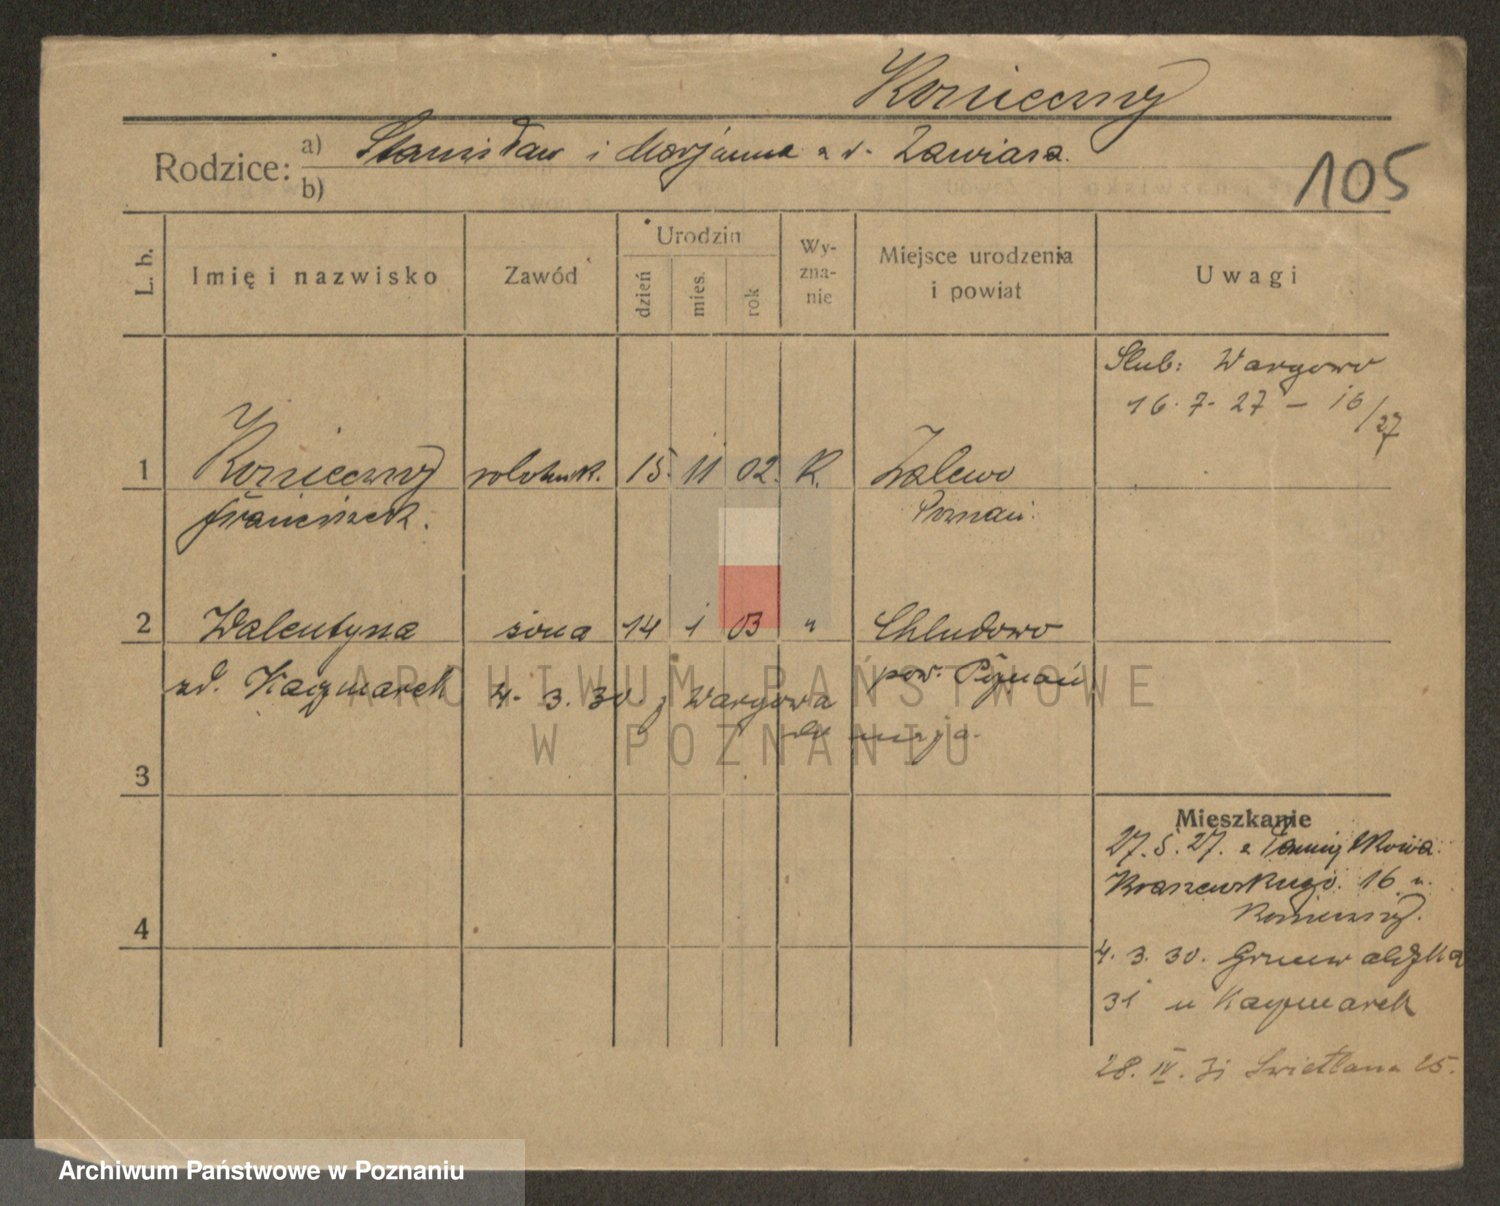 Konieczny
Rodzice: a) Stanisław i Marjanna z d. Zawiasa.
b)
105
L. b. Imię i nazwisko Zawód Urodzin dzień mies. rok Wy-zna-nie Miejsce urodzenia i powiat Uwagi
Ślub: Wargowo
16. 7. 27 – 16/27
1 Konieczny robotnik. 15. 11 02. K. Zalewo
Franciszek. Poznań.
2 Walentyna żona 14 1 03 " Chludowo
zd. Kaczmarek pow. Poznań
4. 3. 30. z Wargowa
3
Mieszkanie
27. 5. 27. z
Kraszewskiego. 16 u.
Konieczny.
4
4. 3. 30. Grunwaldzka
31 u Kaczmarek
28. IV. 31 Swietlana 25.
ARCHIWUM PAŃSTWOWE
W POZNANIU
Archiwum Państwowe w Poznaniu